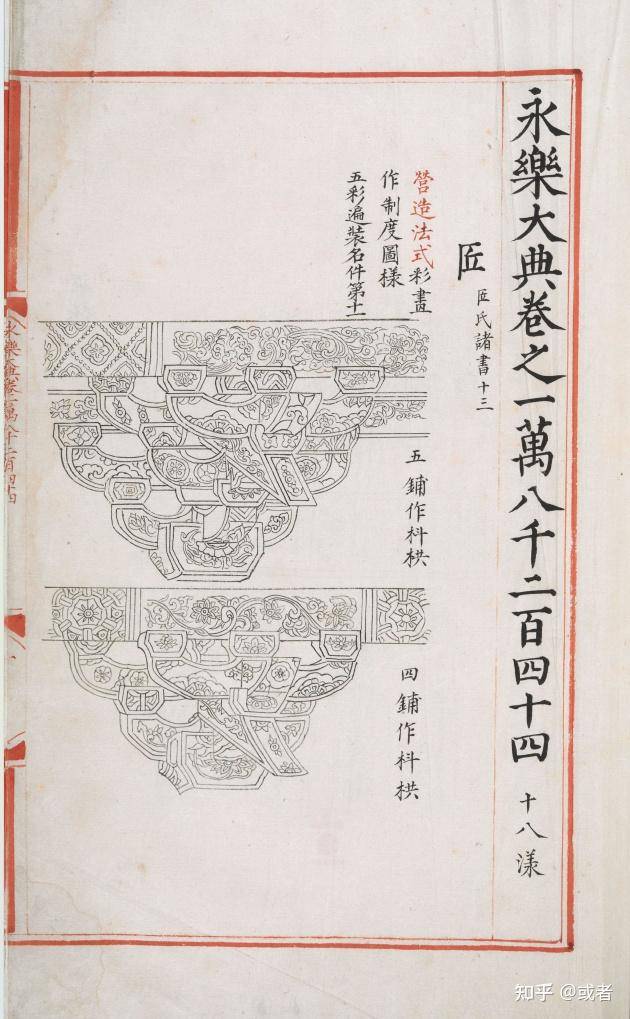 永樂大典卷之一萬八千二百四十四 十八漾
匠 匠氏諸書十三
營造法式彩畫
作制度圖樣
五彩遍裝名件第十一
五鋪作枓栱
四鋪作枓栱
永樂大典卷一萬八千二百四十四
知乎 @或者